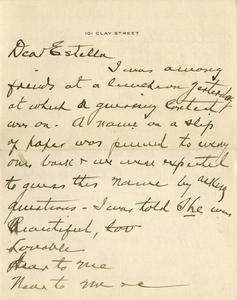 101 CLAY STREET
Dear Estella
I was among
friends at a luncheon yesterday
at which a guessing contest
was on. A name on a slip
of paper was pinned to every
one back & we were expected
to guess this name by asking
questions - I was told She was
Beautiful,
Lovable
Dear to me
Near to me